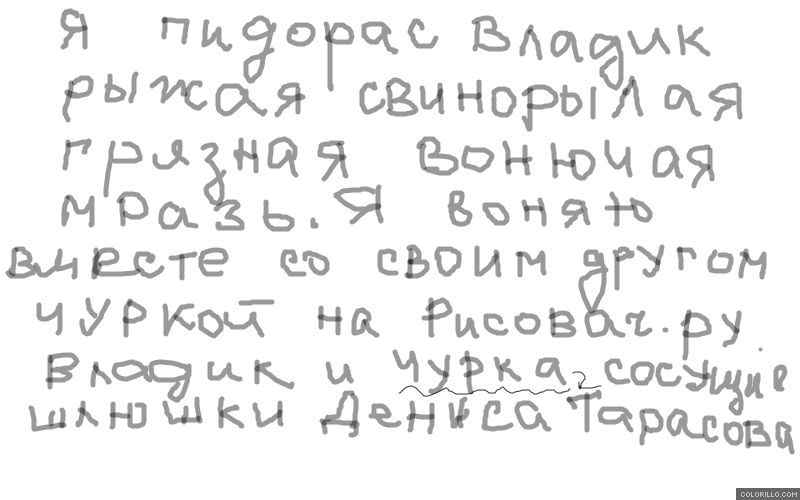 Я пидорас Владик
рыжая свинорылая
грязная вонючая
мразь. Я воняю
вместе со своим другом
чуркой на Рисовач.ру.
Владик и чурка, сосущие
шлюшки Дениса Тарасова
COLORILLO.COM